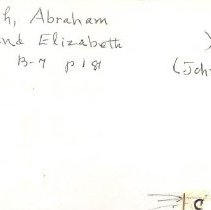 h, Abraham
nd Elizabeth )
B-7 p 181 (Joh
C